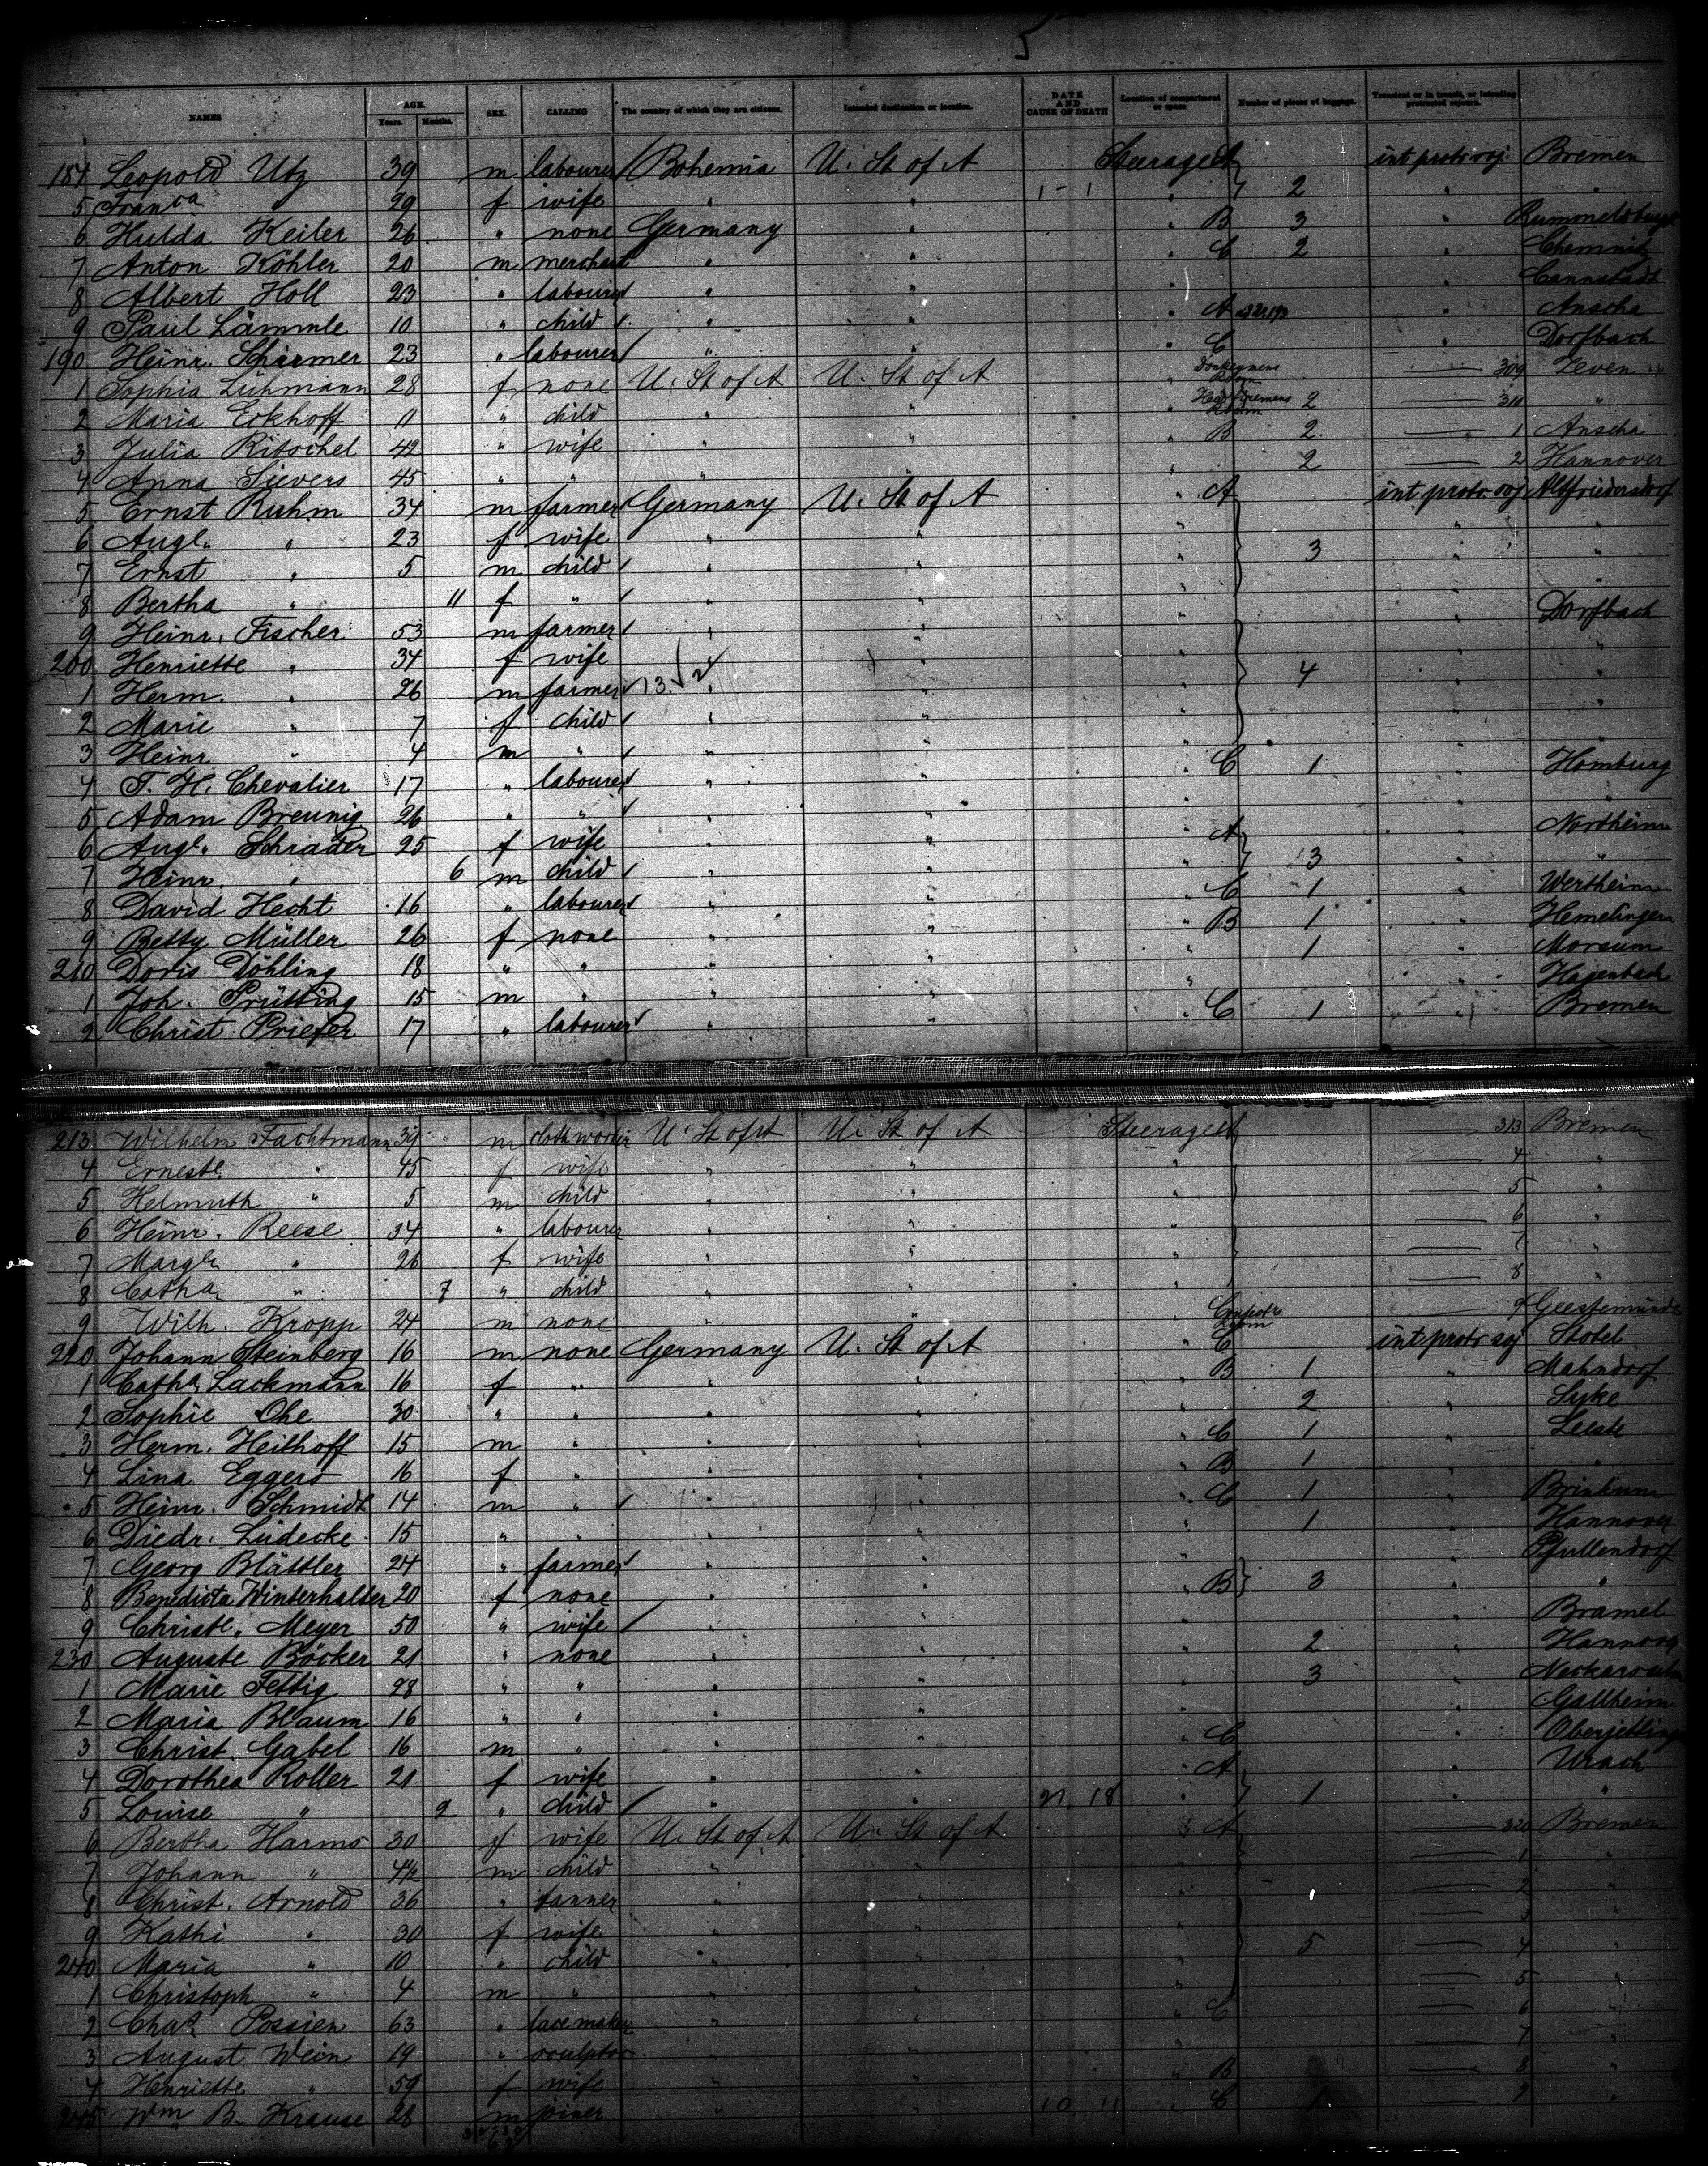 5
NAMES AGE. Years. Months. SEX. CALLING The country of which they are citizens. Intended destination or location. DATE AND CAUSE OF DEATH Location of compartment or space Number of pieces of baggage. Transient or in transit, or intending protracted sojourn.
184 Leopold Utz 39 m labourer Bohemia U. St of A Steerage A int protr soj. Bremen
5 Franca " 29 f wife " " 1 - 1 " 2 " "
6 Hulda Keiler 26 " none Germany " " B 3 "
7 Anton Köhler 20 m merchant " " " C 2 " Chemnitz
8 Albert Holl 23 " labourer " " " " Cannstadt
9 Paul Lämmle 10 " child " " " A " Anscha
190 Heinr. Schirmer 23 " labourer " " " C " Dorfbach
1 Sophia Lühmann 28 f none U. St of A U. St of A " Donkeymens Room 309 Zeven
2 Maria Eckhoff 11 " child " " " Room 2 310 "
3 Julia Ritschel 42 " wife " " " B 2 1 Anscha
4 Anna Sievers 45 " " " " " 2 2 Hannover
5 Ernst Ruhm 34 m farmer Germany U. St of A " A int protr. soj Altfriedersdorf
6 Augte " 23 f wife " " " 3 " "
7 Ernst " 5 m child " " " " "
8 Bertha " 11 f " " " " " "
9 Heinr. Fischer 53 m farmer " " " " Dorfbach
200 Henriette " 34 f wife " " " 4 " "
1 Herm. " 26 m farmer 13 " " " " "
2 Marie " 7 f child " " " " "
3 Heinr " 4 m " " " " " "
4 F. H. Chevalier 17 " labourer " " " C 1 " Homburg
5 Adam Breunig 26 " " " " " " "
6 Augte Schrader 25 f wife " " " A " Northeim
7 Heinr. " 6 m child " " " 3 " "
8 David Hecht 16 " labourer " " " C 1 " Wertheim
9 Betty Müller 26 f none " " " B 1 " Hemelingen
210 Doris Döhling 18 " " " " " 1 " Morsum
1 Joh. Prütting 15 m " " " " " Hagenbach
2 Christ Priefer 17 " labourer " " " C 1 " Bremen
213 Wilhelm Fachtmann 39 m clothworker U. St of A U. St of A Steerage A 313 Bremen
4 Erneste " 45 f wife " " " 4 "
5 Helmuth " 5 m child " " " 5 "
6 Heinr. Reese 34 " labourer " " " 6 "
7 Margte " 26 f wife " " " 7 "
8 Catha " 7 " child " " " 8 "
9 Wilh. Kropp 24 m none " " Room 9 Geestemünde
220 Johann Steinberg 16 m none Germany U. St of A " C int protr soj Stotel
1 Catha Lackmann 16 f " " " " B 1 " Mahndorf
2 Sophie Ohe 30 " " " " " 2 " Syke
3 Herm. Heithoff 15 m " " " " C 1 " Leeste
4 Lina Eggers 16 f " " " " B 1 " "
5 Heinr. Schmidt 14 m " " " " C 1 " Brinkum
6 Diedr. Lüdecke 15 " " " " " 1 " Hannover
7 Georg Blättler 24 " farmer " " " " Pfullendorf
8 Benedicta Winterhalter 20 f none " " " B 3 " "
9 Christe. Meyer 50 " wife " " " " Bramel
230 Auguste Böcker 21 " none " " " 2 " Hannover
1 Marie Fettig 28 " " " " " 3 " Neckarsulm
2 Maria Blaum 16 " " " " " "
3 Christ. Gabel 16 m " " " " C " Oberjettingen
4 Dorothea Roller 21 f wife " " " A " Urach
5 Louise " 2 " child " " 21. 18 " 1 " "
6 Bertha Harms 30 f wife U. St of A U. St of A " A 320 Bremen
7 Johann " 4½ m child " " " 1 "
8 Christ. Arnold 36 " tanner " " " 2 "
9 Kathi " 30 f wife " " " 3 "
240 Maria " 10 " child " " " 5 4 "
1 Christoph " 4 m " " " " 5 "
2 Chas. Possien 63 " lacemaker " " " C 6 "
3 August Wein 19 " sculptor " " " 7 "
4 Henriette " 59 f wife " " " B 8 "
245 Wm B. Krause 28 m joiner " " 10 11 " C 1 9 "